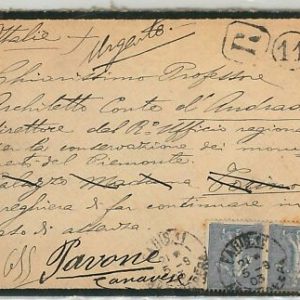 Italia
Urgente
R
Chiarissimo Professore
Architetto Conte d'Andrade
Direttore del R.º Ufficio regionale
per la conservazione dei monu
del Piemonte
Palazzo Madama Torino
preghiera di far continuare in
caso di assenza
Pavone
Canavese
PARIS